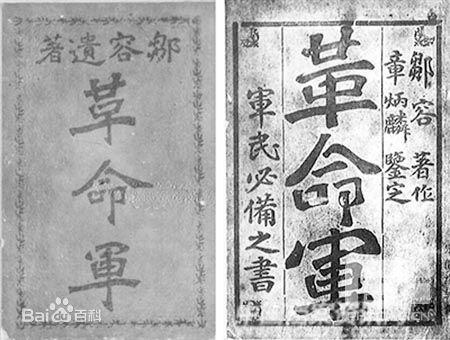 鄒容遺著
革命軍
Bai百科
鄒容 著作
章炳麟 鑒定
革命軍
軍民必備之書